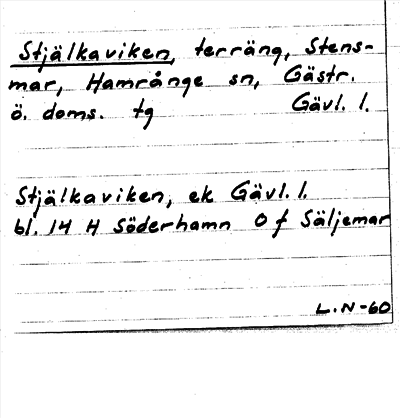 Stjälkaviken, terräng, Stens-
mar, Hamrånge sn, Gästr.
ö. doms. tg Gävl. l.
Stjälkaviken, ek Gävl. l.
bl. 14 H Söderhamn O f Säljemar
L.N-60